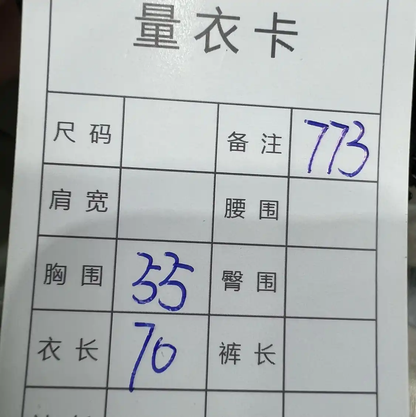 量衣卡
尺码 备注 773
肩宽 腰围
胸围 55 臀围
衣长 70 裤长